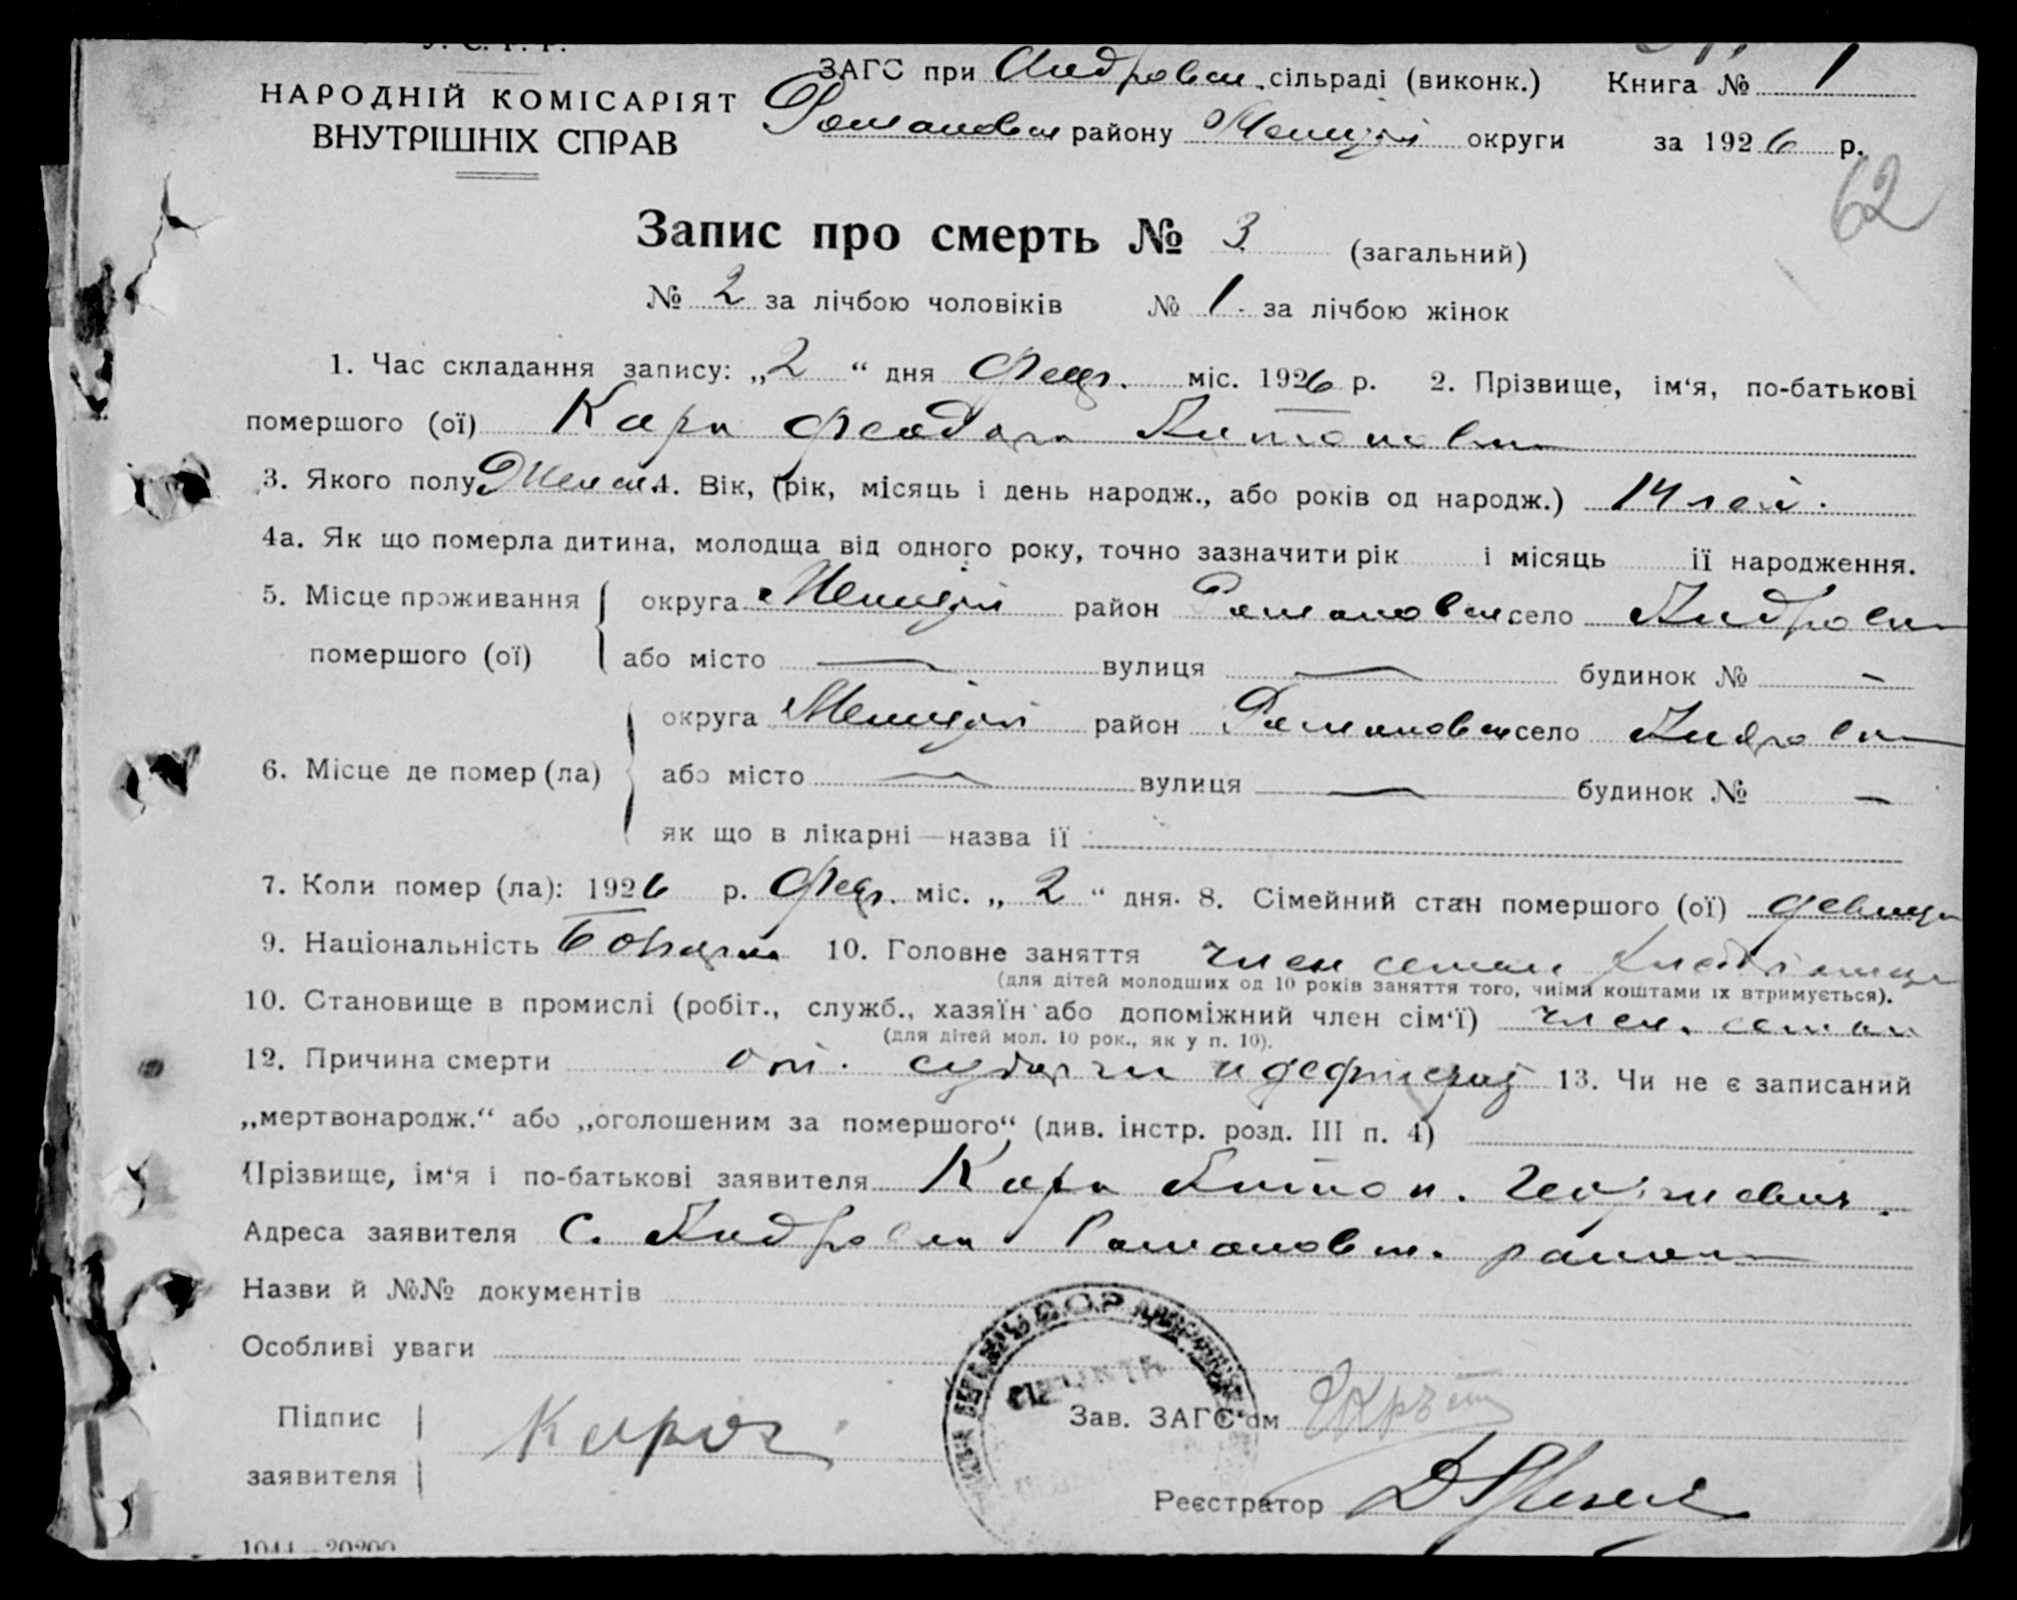 У. С. Р. Р.
НАРОДНІЙ КОМІСАРІЯТ
ВНУТРІШНІХ СПРАВ
ЗАГС при Андровск. сільраді (виконк.) Книга № 1
Романовск району округи за 1926 р.
62
Запис про смерть № 3 (загальний)
№ 2 за лічбою чоловіків № 1. за лічбою жінок
1. Час складання запису: „2“ дня Февр. міс. 1926 р. 2. Прізвище, ім‘я, по-батькові
помершого (ої) Кара Феодора Антоновна
3. Якого полу Женск. 4. Вік, (рік, місяць і день народж., або років од народж.) 14 лет.
4а. Як що померла дитина, молодща від одного року, точно зазначити рік і місяць її народження.
5. Місце проживання округа район Романовск. село Андровка
помершого (ої) або місто — вулиця — будинок № —
округа район Романовск село Андровка
6. Місце де помер (ла) або місто — вулиця — будинок № —
як що в лікарні — назва її
7. Коли помер (ла): 1926 р. Февр. міс. „2“ дня. 8. Сімейний стан помершого (ої) девица
9. Національність Болгарка 10. Головне заняття член семьи
(для дітей молодших од 10 років заняття того, чиїми коштами їх втримується).
10. Становище в промислі (робіт., служб., хазяїн або допоміжний член сім‘ї) член. семьи
(для дітей мол. 10 рок., як у п. 10).
12. Причина смерти от. 13. Чи не є записаний
„мертвонародж.“ або „оголошеним за помершого“ (див. інстр. розд. III п. 4)
Прізвище, ім‘я і по-батькові заявителя Кара Антон. Георгиевич.
Адреса заявителя С. Андровка Романовск. района
Назви й №№ документів
Особливі уваги
Підпис
заявителя
Зав. ЗАГС‘ом
Реєстратор
1044—20200